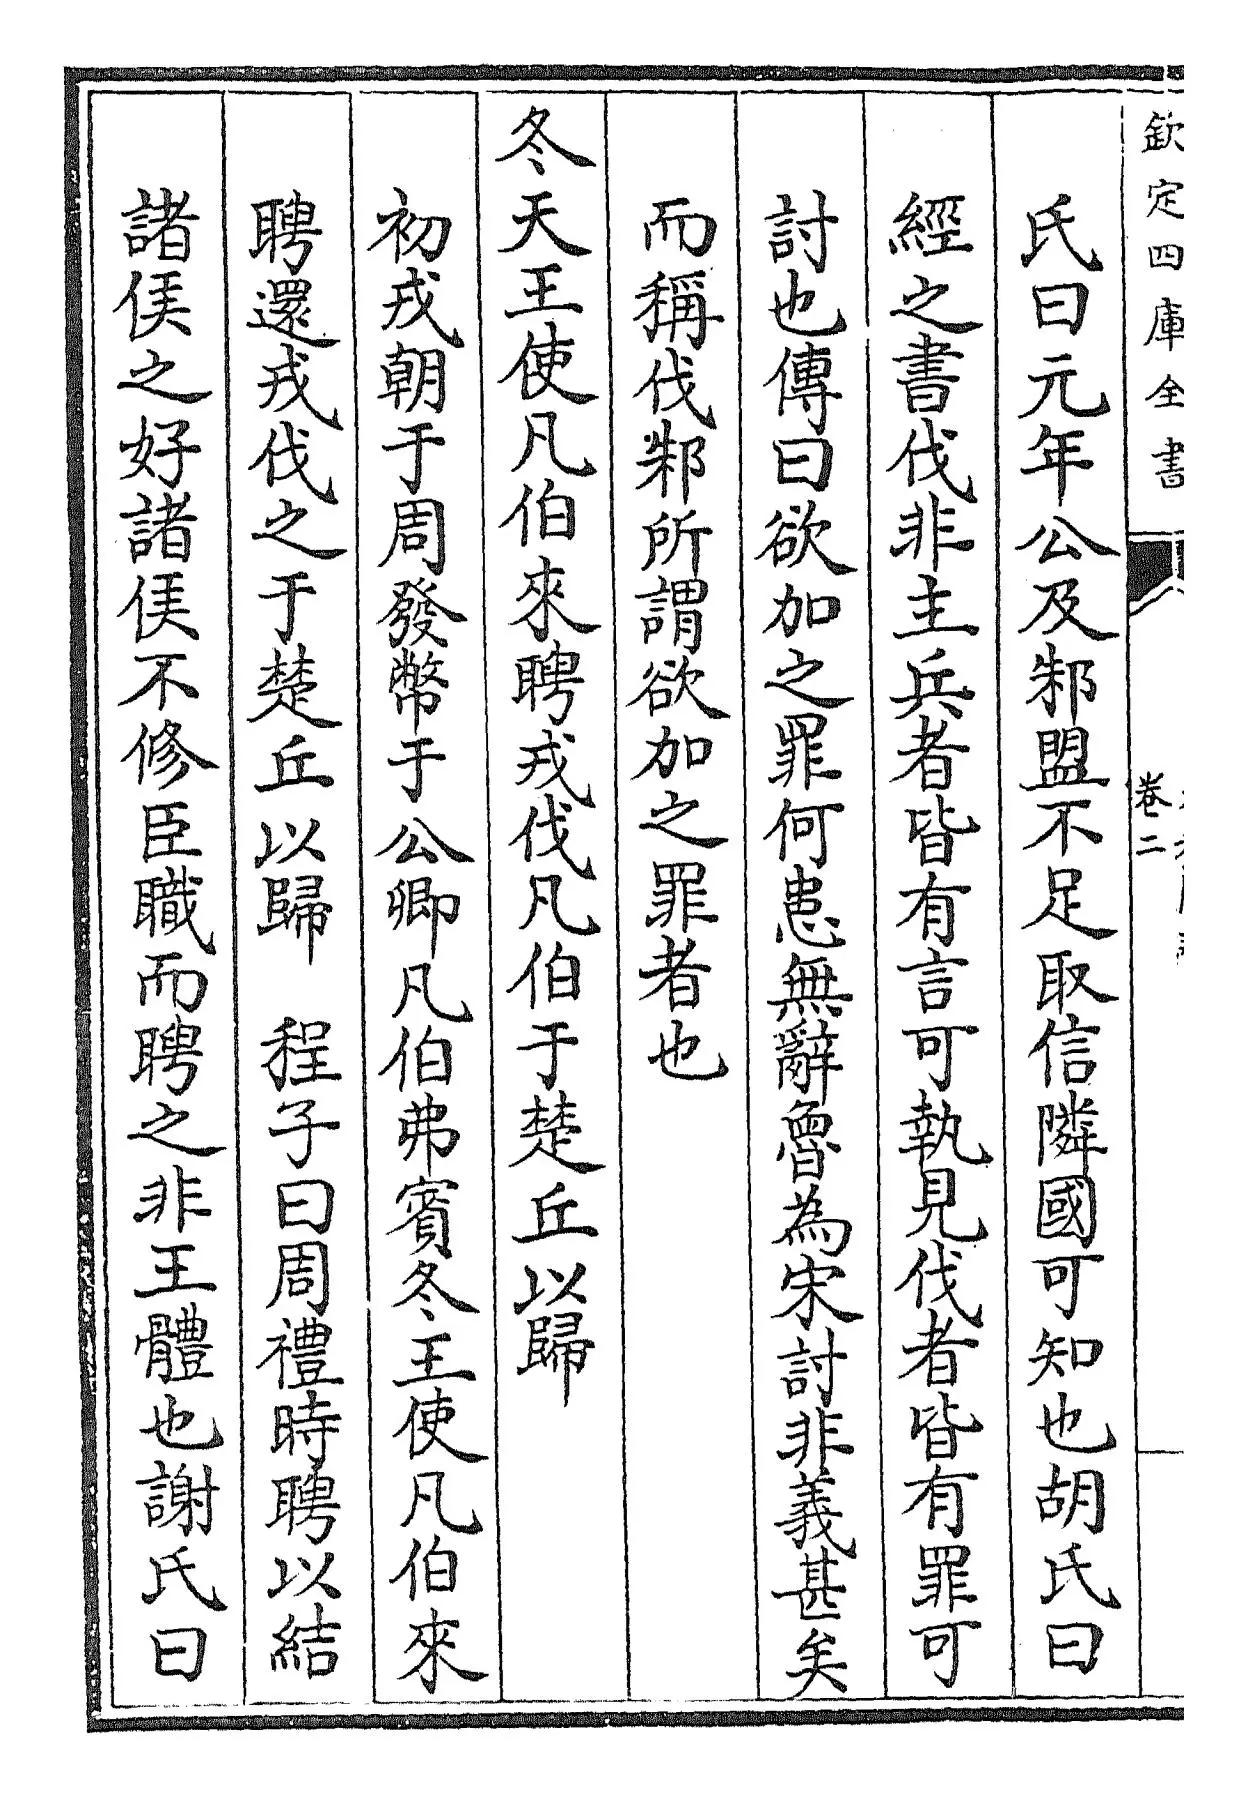 欽定四庫全書
卷二
氏曰元年公及邾盟不足取信隣國可知也胡氏曰
經之書伐非主兵者皆有言可執見伐者皆有罪可
討也傳曰欲加之罪何患無辭魯為宋討非義甚矣
而稱伐邾所謂欲加之罪者也
冬天王使凡伯來聘戎伐凡伯于楚丘以歸
初戎朝于周發幣于公卿凡伯弗賓冬王使凡伯來
聘還戎伐之于楚丘以歸　程子曰周禮時聘以結
諸侯之好諸侯不修臣職而聘之非王體也謝氏曰